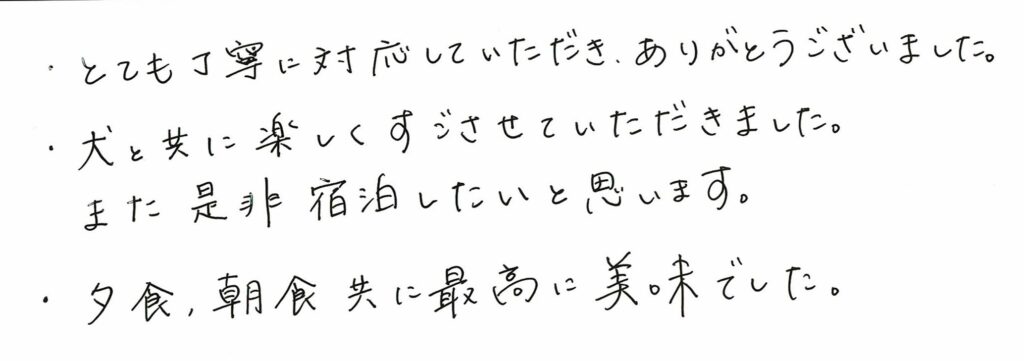 ・とても丁寧に対応していただき、ありがとうございました。
・犬と共に楽しくすごさせていただきました。
また是非宿泊したいと思います。
・夕食,朝食共に最高に美味でした。